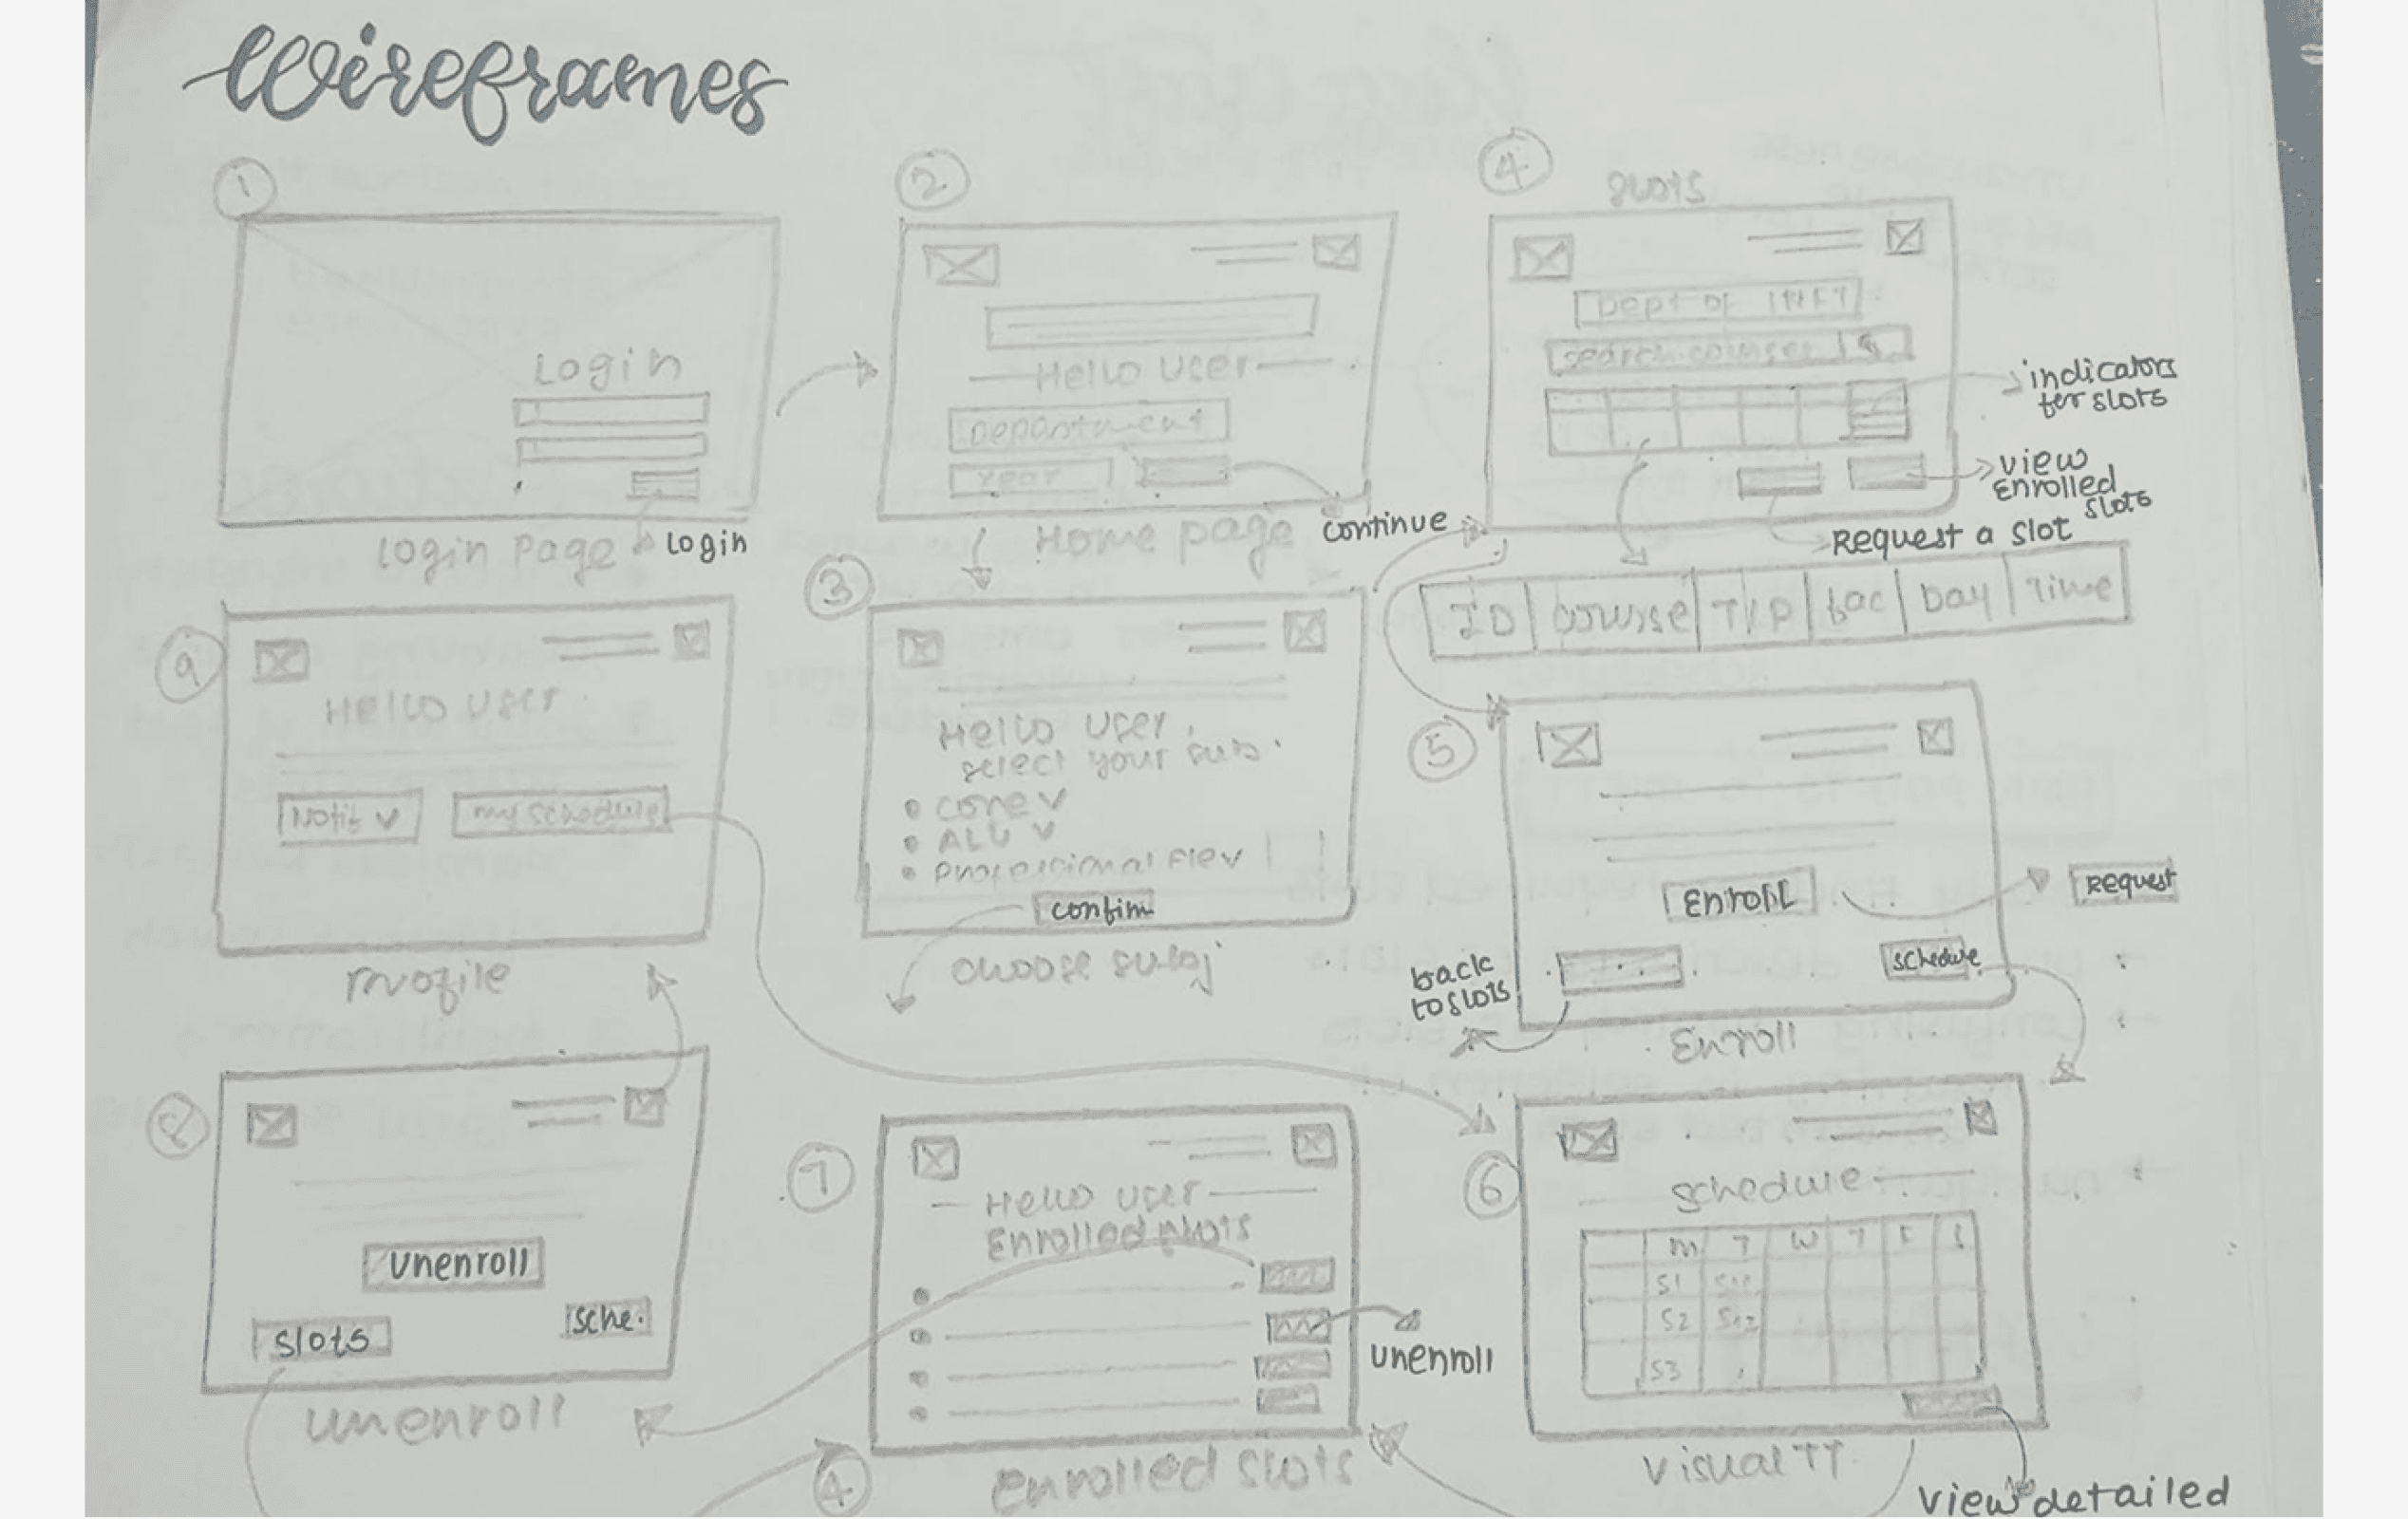 Wireframes
1
Login
Login page
Login
2
Hello user
Department
year
Home page
continue
4
slots
Dept of
search courses
indicators
for slots
view
Enrolled
slots
Request a slot
ID course T/P fac Day Time
9
Hello user
Notif v
my schedule
profile
3
Hello user,
select your sub.
core v
ALU v
professional Elev
confirm
choose subj
5
Enroll
Request
schedule
back
to slots
Enroll
8
unenroll
slots
sche.
unenroll
7
Hello user
Enrolled slots
unenroll
Enrolled slots
4
6
schedule
M T W T F S
S1
S2
S3
visual TT
view detailed